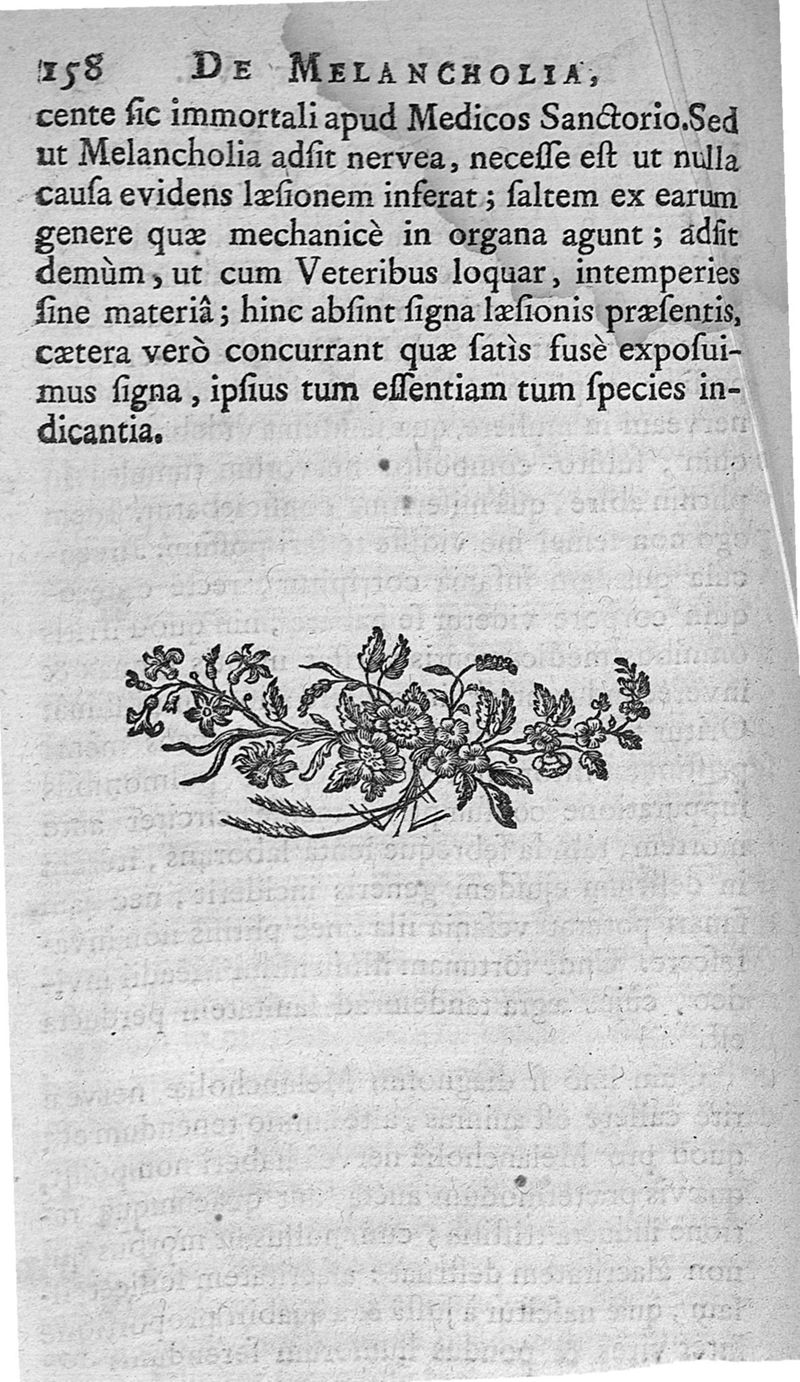 158 DE MELANCHOLIA,
cente ſic immortali apud Medicos Sanctorio. Sed
ut Melancholia adſit nervea, neceſſe eſt ut nulla
cauſa evidens læſionem inferat; ſaltem ex earum
genere quæ mechanicè in organa agunt; adſit
demùm, ut cum Veteribus loquar, intemperies
ſine materiâ; hinc abſint ſigna læſionis præſentis,
cætera verò concurrant quæ ſatìs fusè expoſui-
mus ſigna, ipſius tum eſſentiam tum ſpecies in-
dicantia.